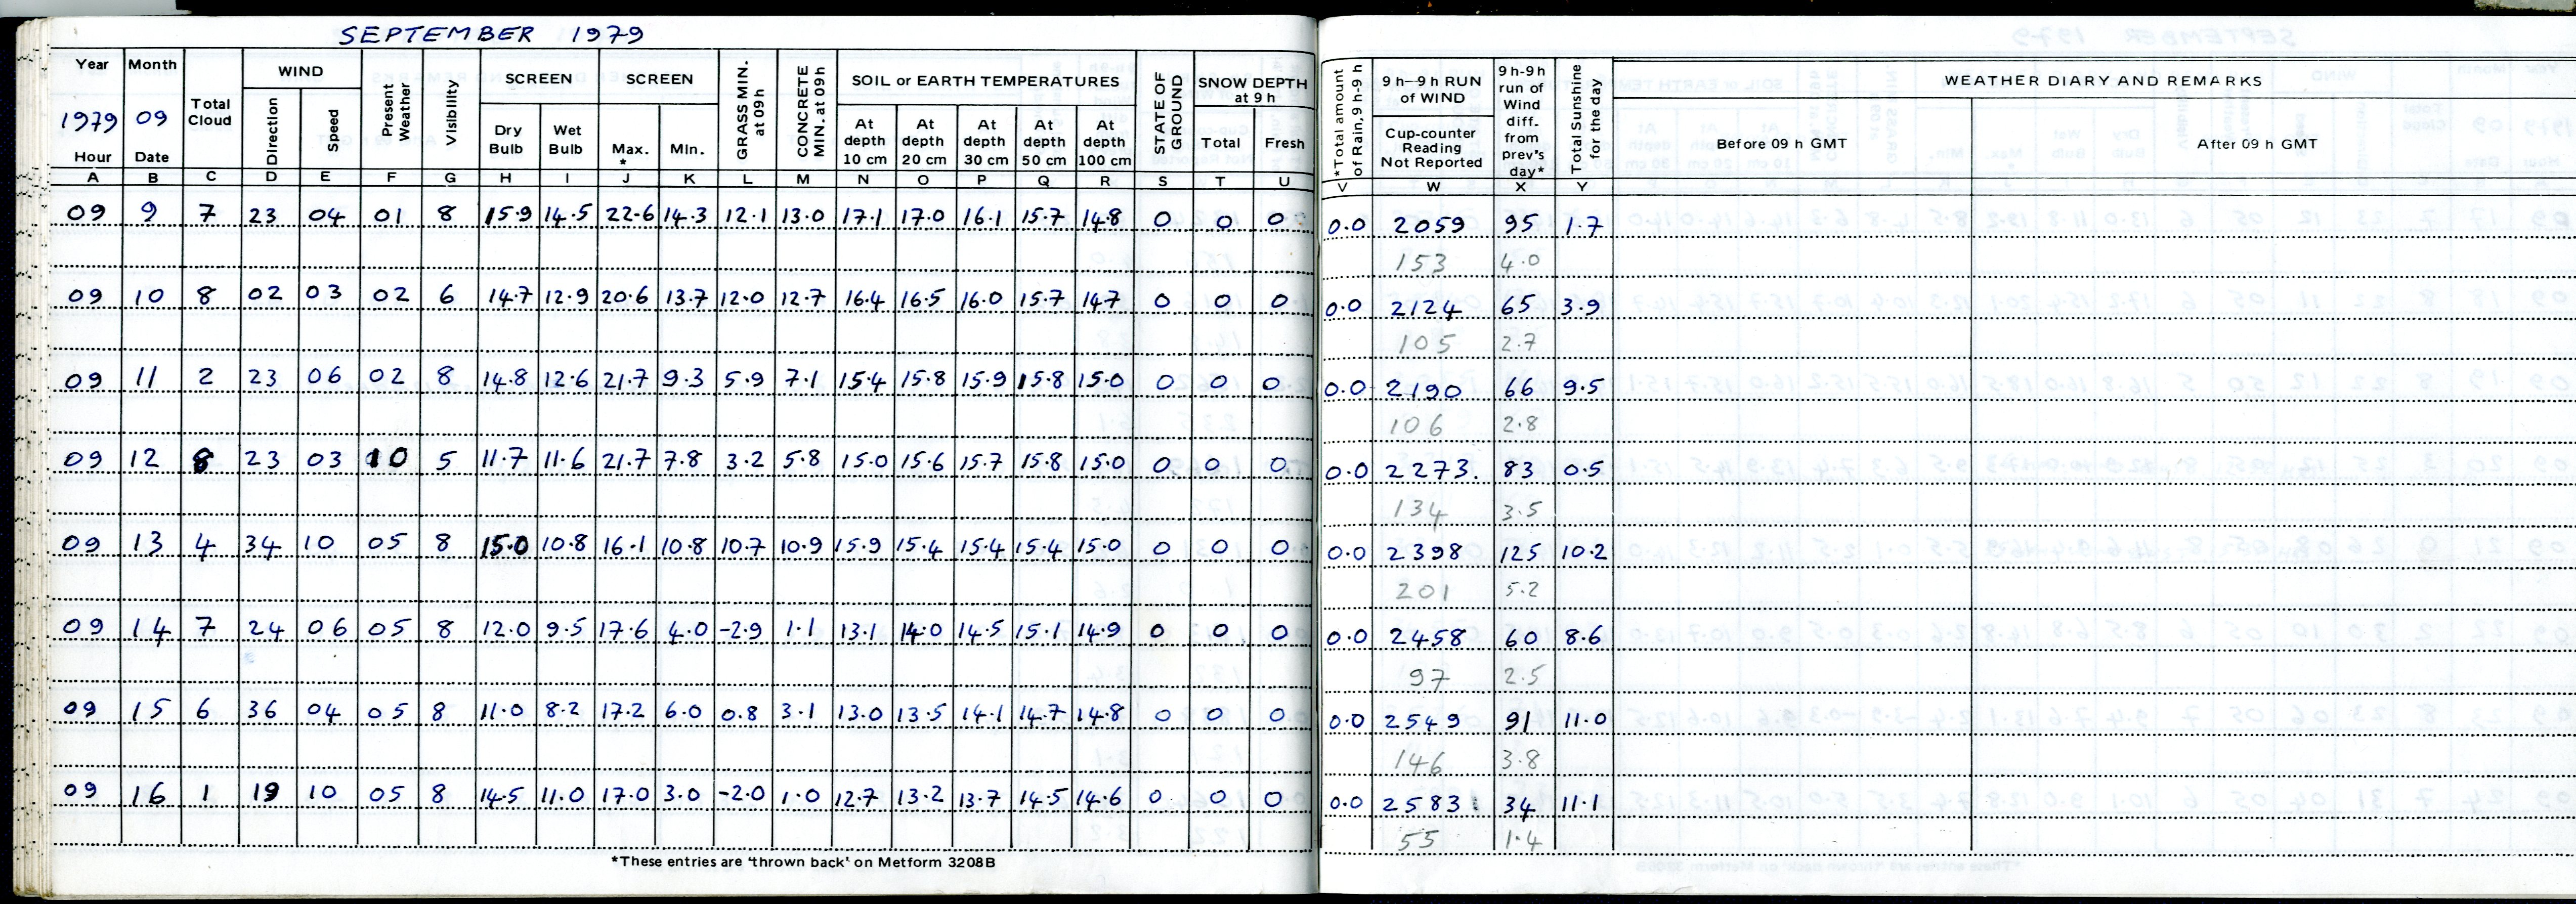 SEPTEMBER 1979
Year Month Total Cloud WIND Present Weather Visibility SCREEN SCREEN GRASS MIN. at 09h CONCRETE MIN. at 09h SOIL or EARTH TEMPERATURES STATE OF GROUND SNOW DEPTH at 9 h *Total amount of Rain, 9h-9h 9 h—9 h RUN of WIND 9 h-9h run of Wind diff. from prev's day* Total Sunshine for the day WEATHER DIARY AND REMARKS
1979 09 Direction Speed Dry Bulb Wet Bulb Max. * Min. At depth 10 cm At depth 20 cm At depth 30 cm At depth 50 cm At depth 100 cm Total Fresh Cup-counter Reading Not Reported Before 09 h GMT After 09 h GMT
Hour Date
A B C D E F G H I J K L M N O P Q R S T U V W X Y
09 9 7 23 04 01 8 15.9 14.5 22.6 14.3 12.1 13.0 17.1 17.0 16.1 15.7 14.8 0 0 0 0.0 2059 95 1.7
153 4.0
09 10 8 02 03 02 6 14.7 12.9 20.6 13.7 12.0 12.7 16.4 16.5 16.0 15.7 14.7 0 0 0 0.0 2124 65 3.9
105 2.7
09 11 2 23 06 02 8 14.8 12.6 21.7 9.3 5.9 7.1 15.4 15.8 15.9 15.8 15.0 0 0 0 0.0 2190 66 9.5
106 2.8
09 12 8 23 03 10 5 11.7 11.6 21.7 7.8 3.2 5.8 15.0 15.6 15.7 15.8 15.0 0 0 0 0.0 2273. 83 0.5
134 3.5
09 13 4 34 10 05 8 15.0 10.8 16.1 10.8 10.7 10.9 15.9 15.4 15.4 15.4 15.0 0 0 0 0.0 2398 125 10.2
201 5.2
09 14 7 24 06 05 8 12.0 9.5 17.6 4.0 -2.9 1.1 13.1 14.0 14.5 15.1 14.9 0 0 0 0.0 2458 60 8.6
97 2.5
09 15 6 36 04 05 8 11.0 8.2 17.2 6.0 0.8 3.1 13.0 13.5 14.1 14.7 14.8 0 0 0 0.0 2549 91 11.0
146 3.8
09 16 1 19 10 05 8 14.5 11.0 17.0 3.0 -2.0 1.0 12.7 13.2 13.7 14.5 14.6 0 0 0 0.0 2583 34 11.1
55 1.4
*These entries are 'thrown back' on Metform 3208B